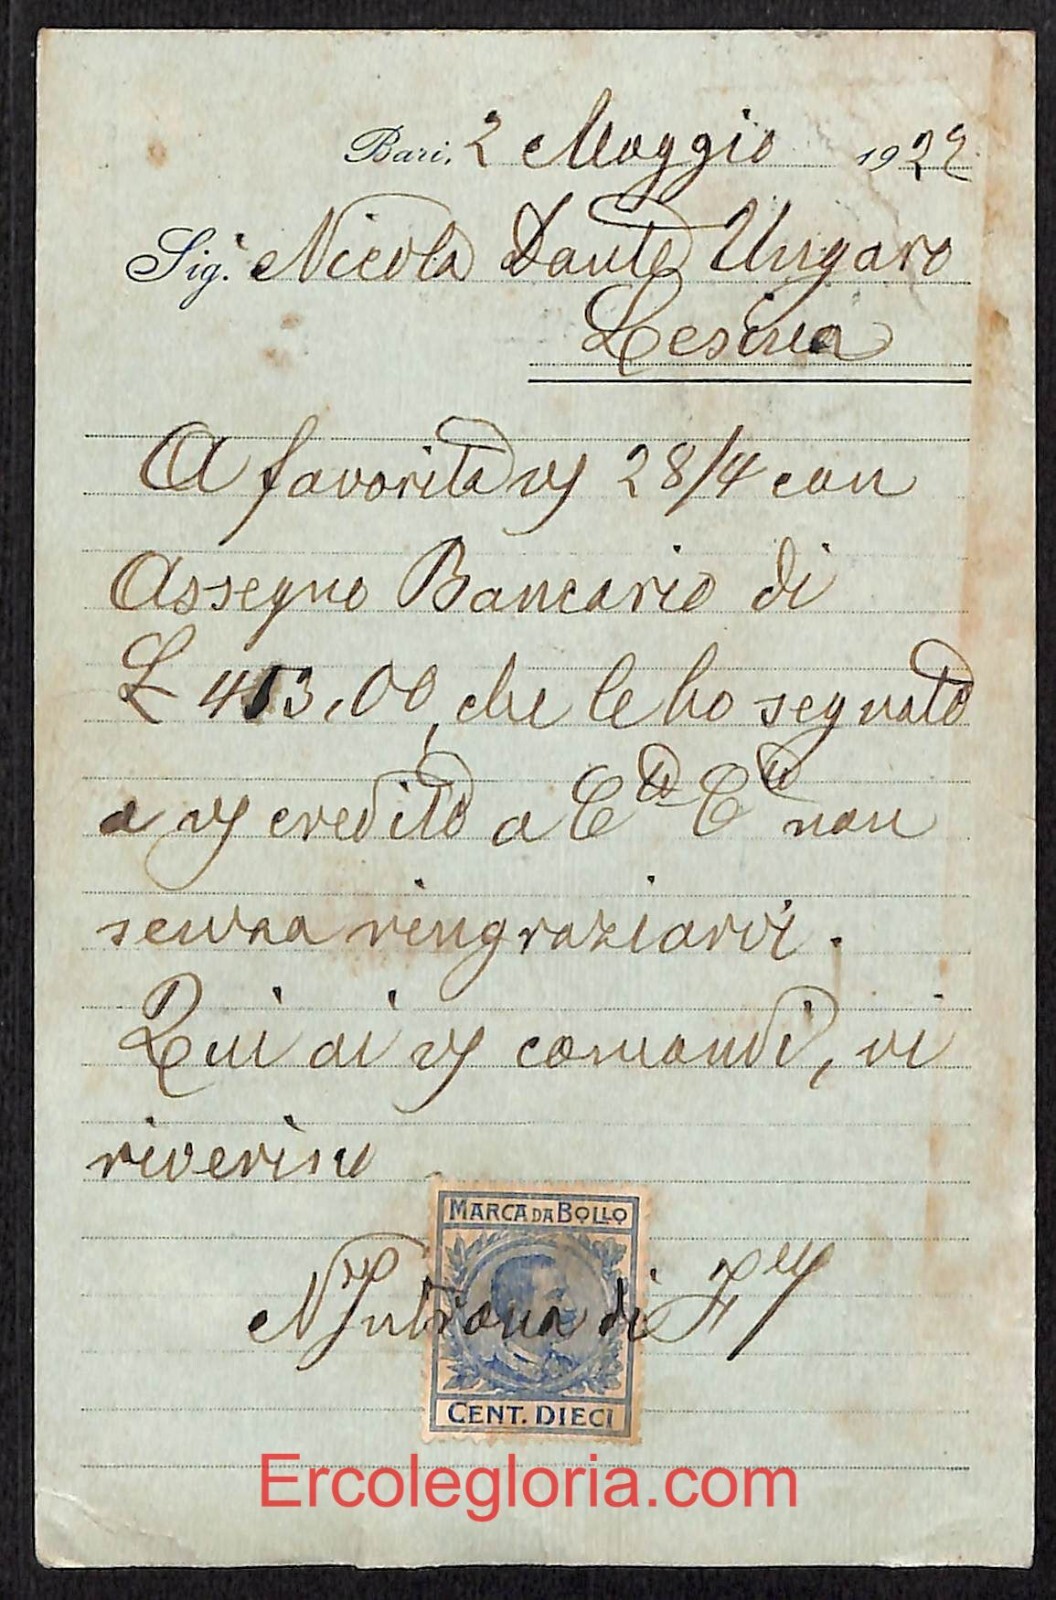 Bari, 2 Maggio 1922
Sig. Nicola Dante Ungaro
Lesina
A favorita vs 28/4 con
Assegno Bancario di
£ 413,00, che le ho segnato
a vs credito a Cto Cte non
senza ringraziarvi.
Qui ai vs comandi, vi
riverisco
MARCA DA BOLLO
N Introna di
CENT. DIECI
Ercolegloria.com